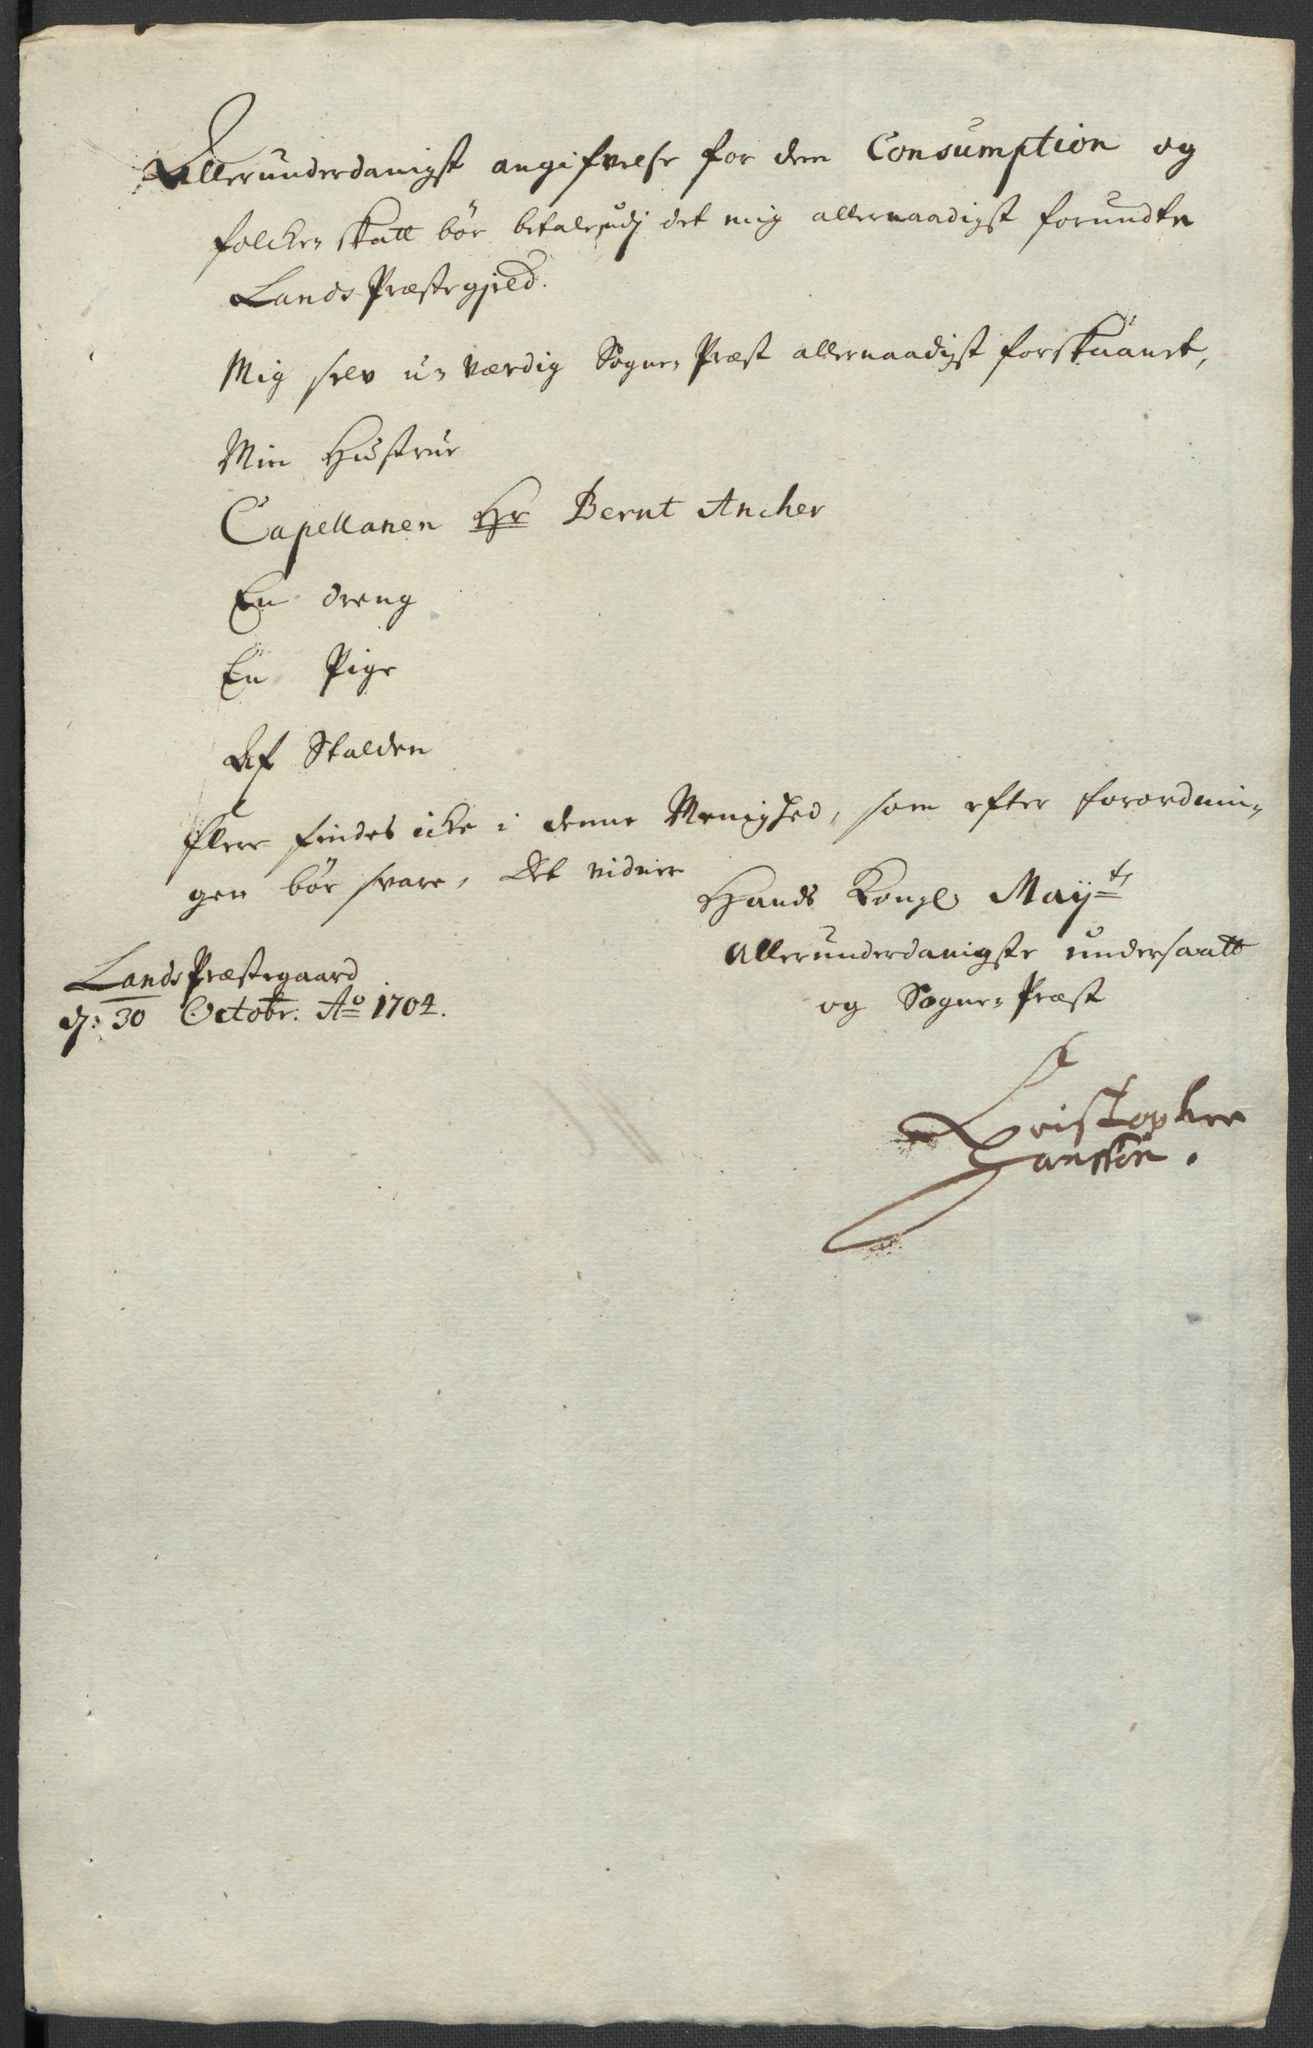 Allerunderdanigst angifvelse for dem Consumption og
folche, skatt bör betale udj det mig allernaadigst forundte
Lands Præstegjeld.
Mig selv u-værdig Sogne-Præst allernaadigst forskaanet,
Min Hustrue
Capellanen Hr Bernt Ancher
En dreng
En Pige
Af Stalden
flere findes icke i denne Menighed, som efter forordnin-
gen bör svare, Det vidner
Hands Kongl Mayts
Allerunderdanigste undersaatt
og Sogne-Præst
Lands Præstegaard
d: 30 Octobr. Ao 1704.
Christopher
Hanssön.